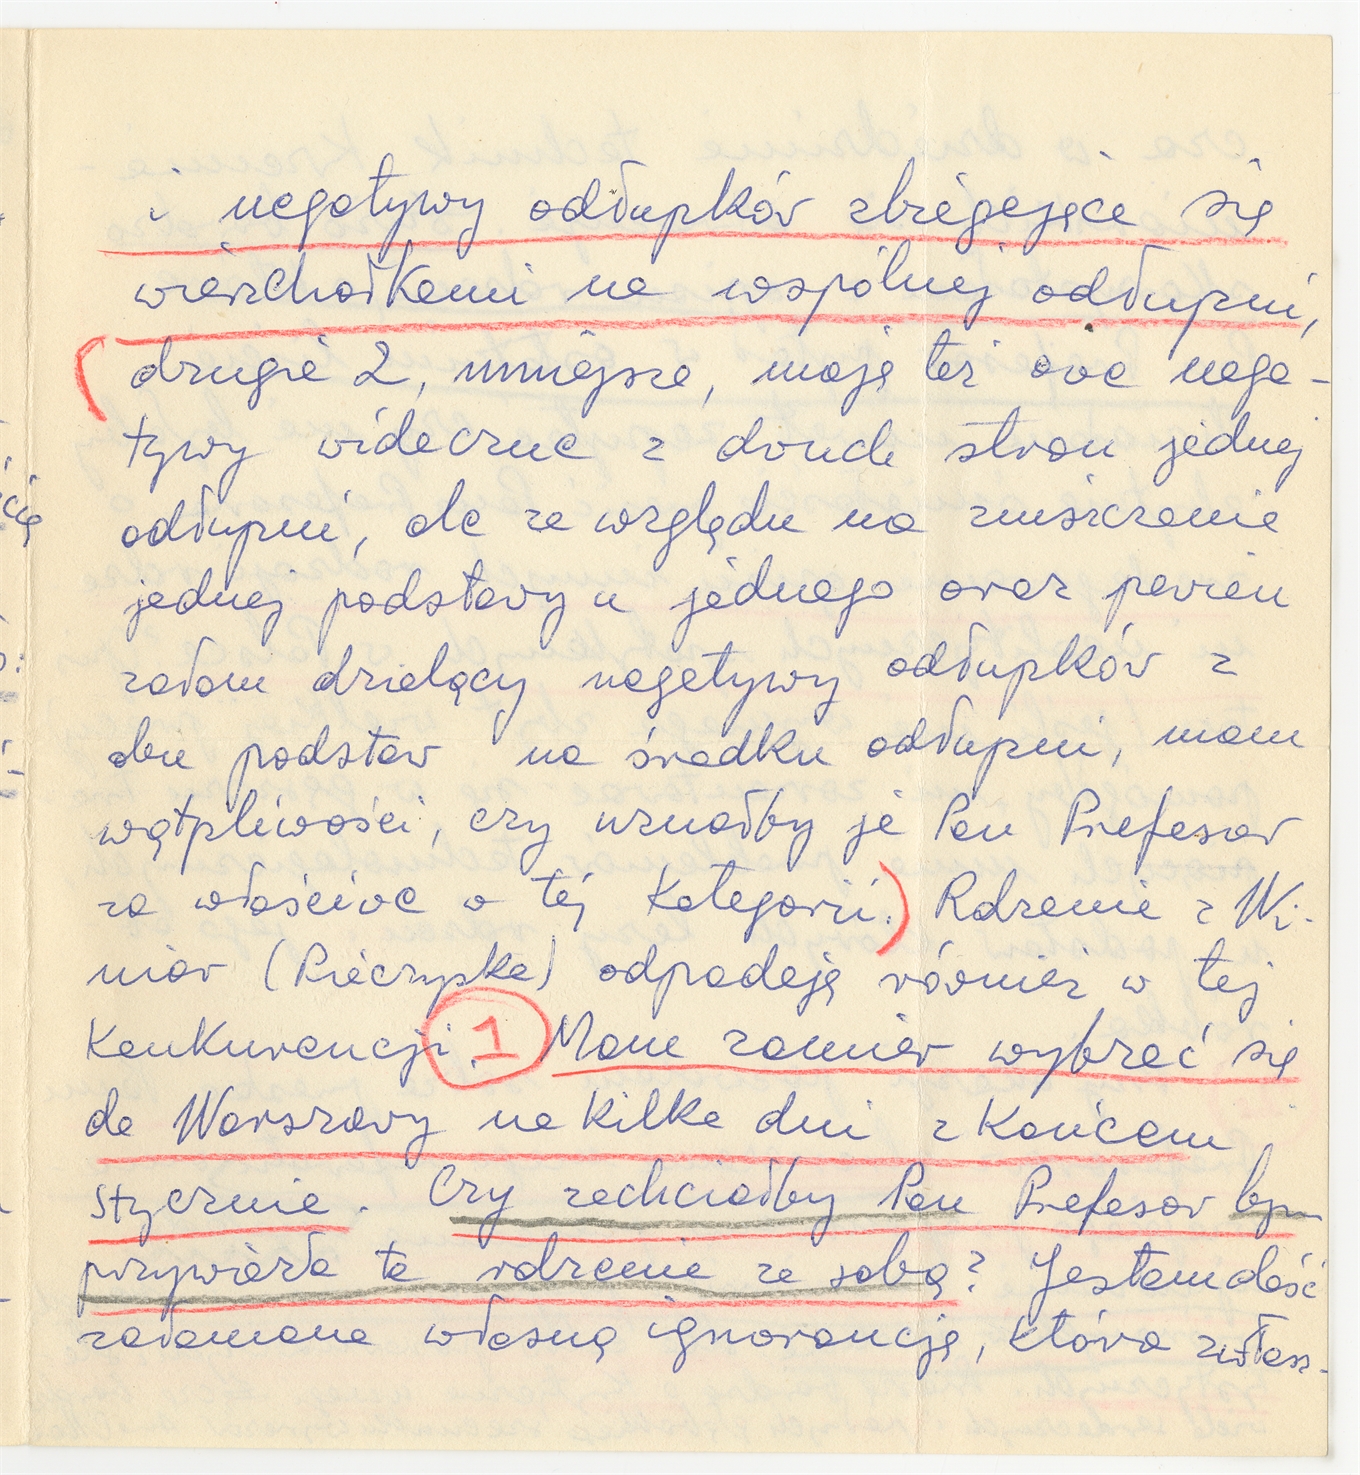 i negatywy odłupków zbiegające się
wierzchołkami na wspólnej odłupni,
drugie 2, mniejsze, mają też owe nega-
tywy widoczne z dwuch stron jednej
odłupni, ale ze względu na zniszczenie
jednej podstawy u jednego oraz pewien
załom dzielący negatywy odłupków z
obu podstaw na środku odłupni, mam
wątpliwości, czy uznałby je Pan Profesor
za właściwe w tej kategorii.) Rdzenie z Wi-
niar (Pieczyska) odpadają również w tej
Konkurencji. 1 Mam zamiar wybrać się
do Warszawy na kilka dni z końcem
stycznia. Czy zechciałby Pan Profesor bym
przywiozła te rdzenie ze sobą? Jestem dość
załamana własną ignorancją, która zwłasz-